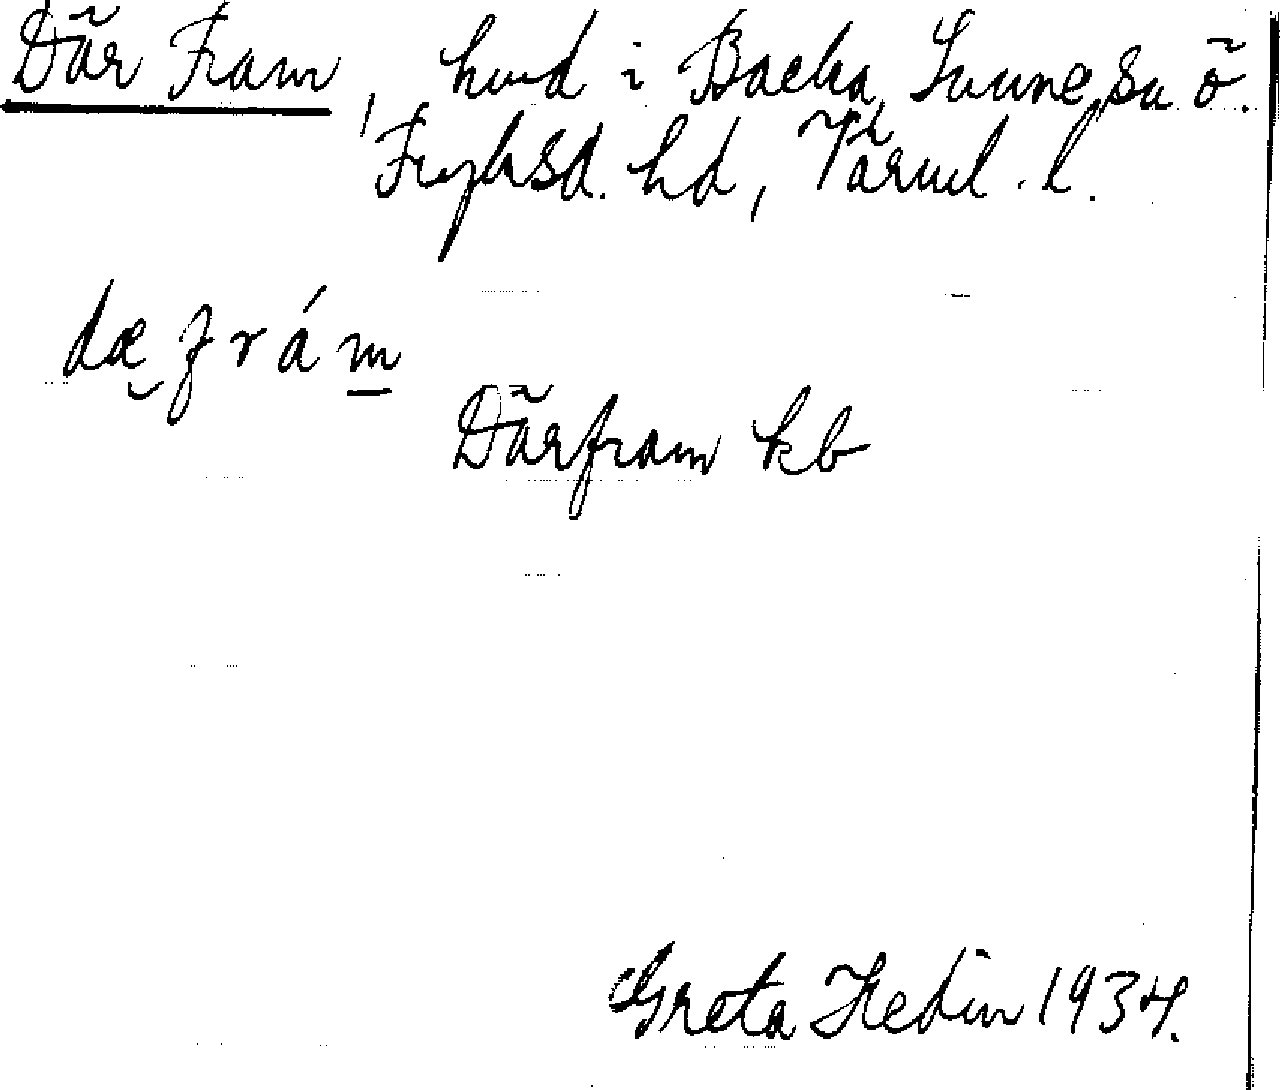 Där Fram, hmd i Backa, Sunne sn ö.
Fryksd. hd, Värml. l.
dæ̮ f r á m̲
Därfram kb
Greta Hedin 1934.